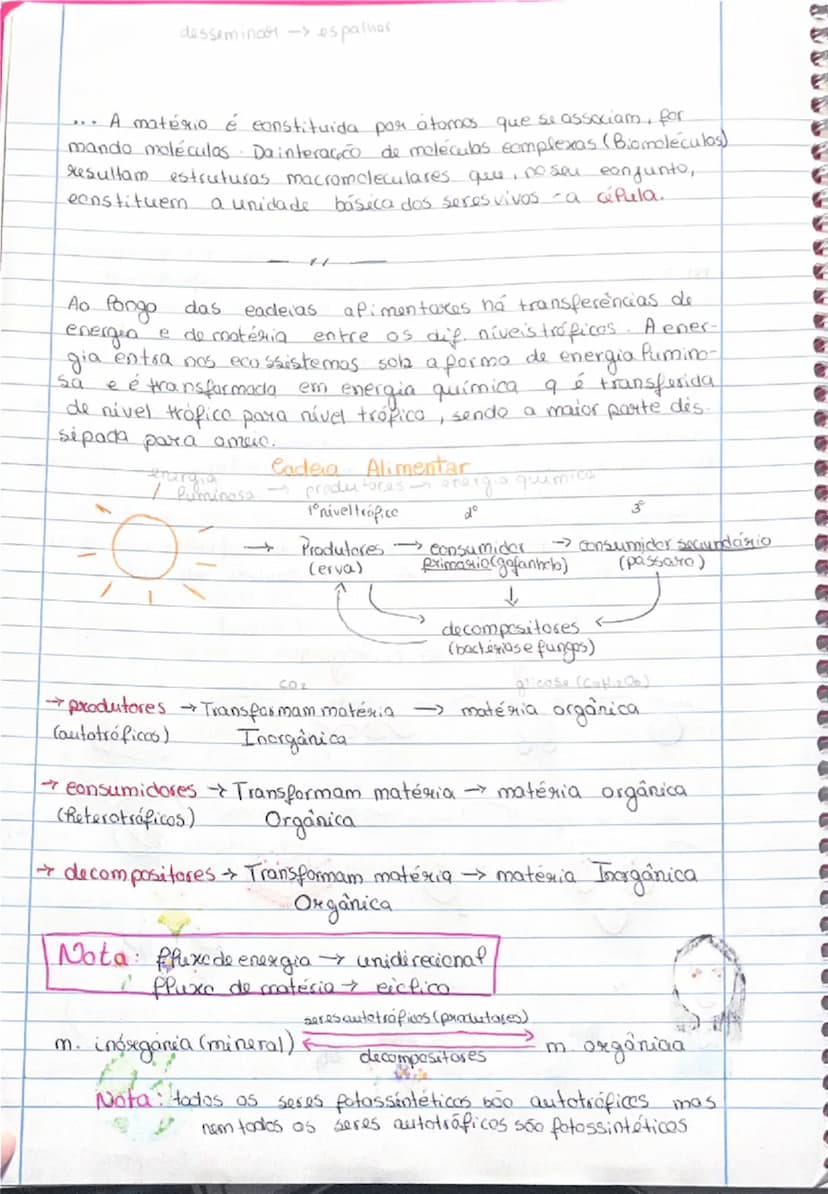 desseminar → espalhar
... A matéria é constituida por átomos que se associam, for
mando moléculas. Da interação de moléculas complexas (Biomoléculas)
resultam estruturas macromoleculares que, no seu conjunto,
constituem a unidade básica dos seres vivos - a célula.
— " —
Ao longo das cadeias alimentares há transferências de
energia e de matéria entre os dif. níveis tróficos. A ener-
gia entra nos ecossistemas sob a forma de energia lumino-
sa e é transformada em energia química q é transferida
de nível trófico para nível trófico, sendo a maior parte dis
sipada para o meio.
Cadeia Alimentar
energia
luminosa → produtores → energia química
1º nível trófico 2º 3º
→ Produtores → consumidor → consumidor secundário
(erva) primário (gafanhoto) (pássaro)
↓
decompositores
(bactérias e fungos)
CO2 glicose (C6H12O6)
→ produtores → Transformam matéria → matéria orgânica
(autotróficos) Inorgânica
→ consumidores → Transformam matéria → matéria orgânica
(heterotróficos) Orgânica
→ decompositores → Transformam matéria → matéria Inorgânica
Orgânica
Nota: fluxo de energia → unidirecional
fluxo de matéria → cíclico
seres autotróficos (produtores)
m. inórgânia (mineral) m. orgâniaa
decompositores
Nota: todos os seres fotossintéticos são autotróficos mas
nem todos os seres autotróficos são fotossintéticos